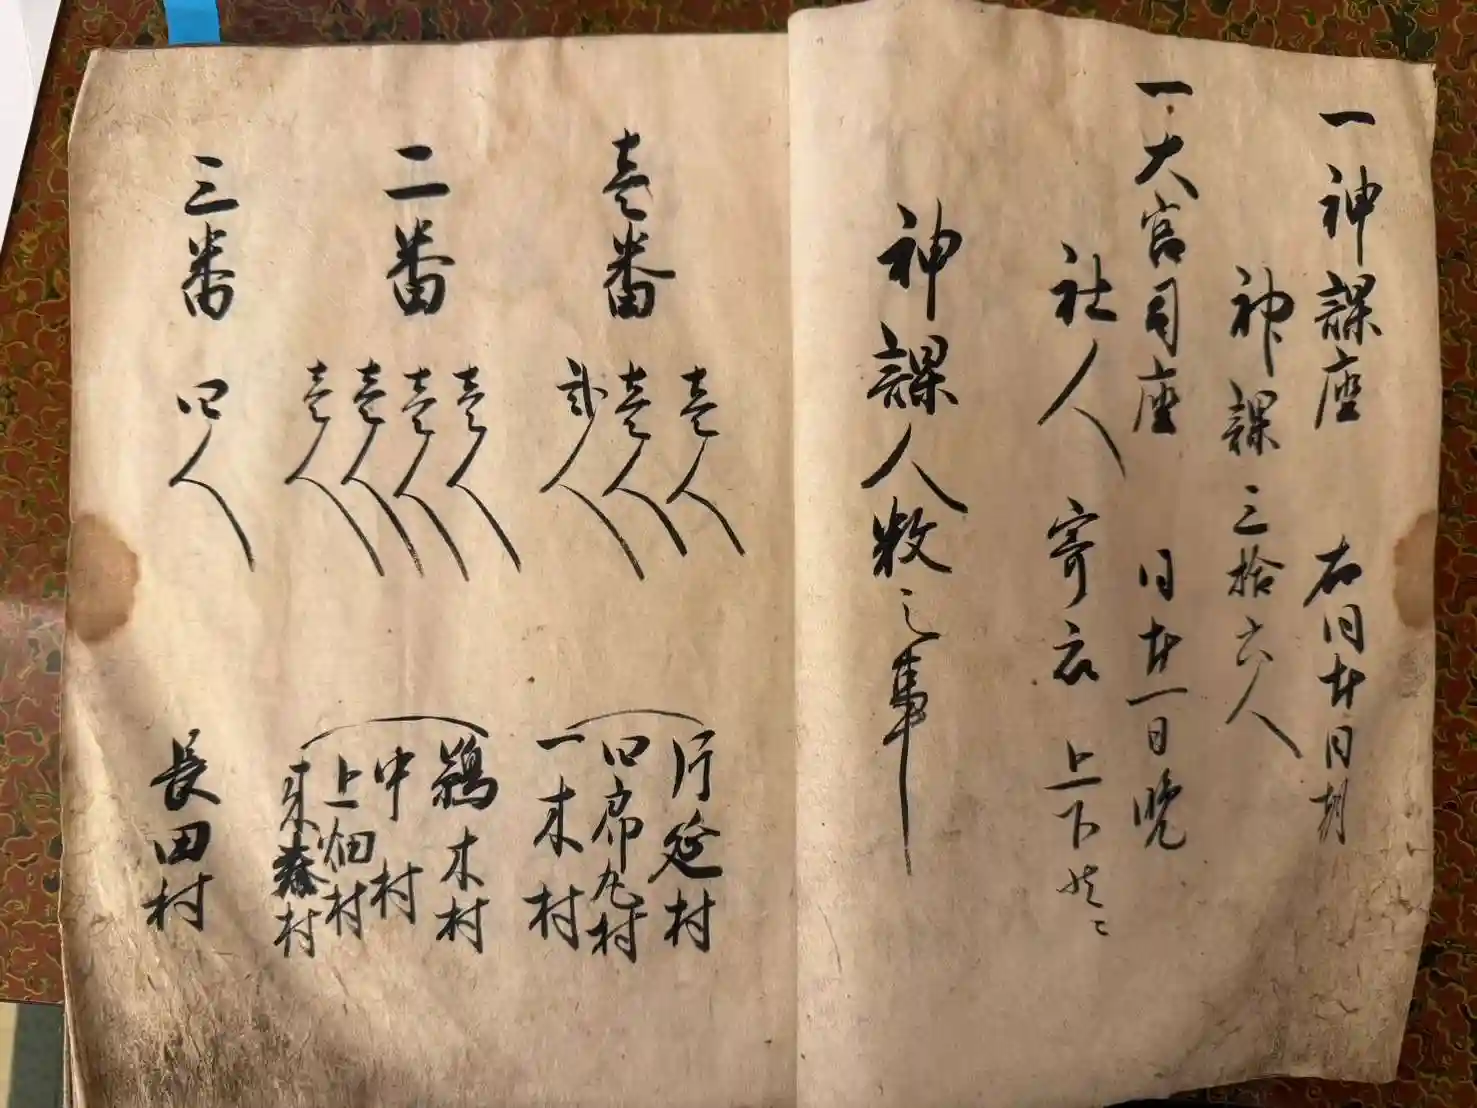 一神課座 右同廿日朝
神課三拾六人
一大宮司座 同廿一日晩
社人寄衣上下
神課人数之事
壱番
壱人 片延村
壱人 四郎丸村
弐人 一木村
二番
壱人 鶏木村
壱人 中村
壱人 上畑村
壱人 村
三番 四人 長田村